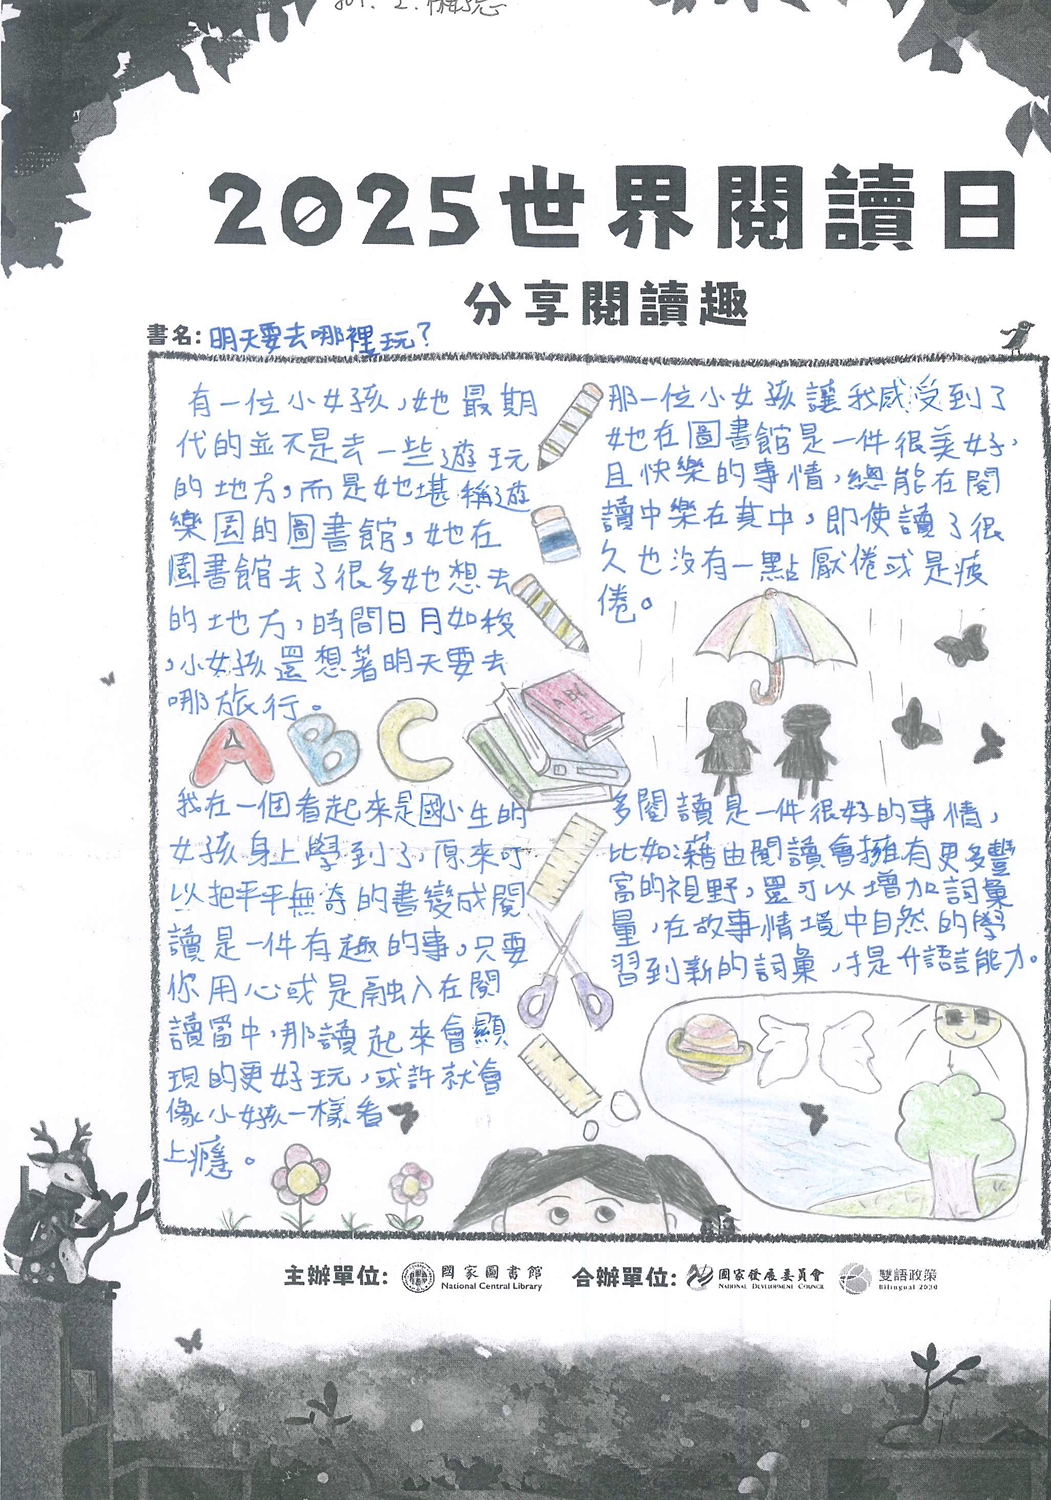 801. 2.
2025世界閱讀日
分享閱讀趣
書名:明天要去哪裡玩?
有一位小女孩,她最期
代的並不是去一些遊玩
的地方,而是她堪稱遊
樂園的圖書館,她在
圖書館去了很多她想去
的地方,時間日月如梭
,小女孩還想著明天要去
哪旅行。
那一位小女孩讓我感受到了
她在圖書館是一件很美好,
且快樂的事情,總能在閱
讀中樂在其中,即使讀了很
久也沒有一點厭倦或是疲
倦。
ABC
ABC
我在一個看起來是國小生的
女孩身上學到了,原來可
以把平平無奇的書變成閱
讀是一件有趣的事,只要
你用心或是融入在閱
讀當中,那讀起來會顯
現的更好玩,或許就會
像小女孩一樣看
上癮。
多閱讀是一件很好的事情,
比如:藉由閱讀會擁有更多豐
富的視野,還可以增加詞彙
量,在故事情境中自然的學
習到新的詞彙,才是升語言能力。
主辦單位: 國家圖書館 National Central Library 合辦單位: 國家發展委員會 National Development Council 雙語政策 Bilingual 2030